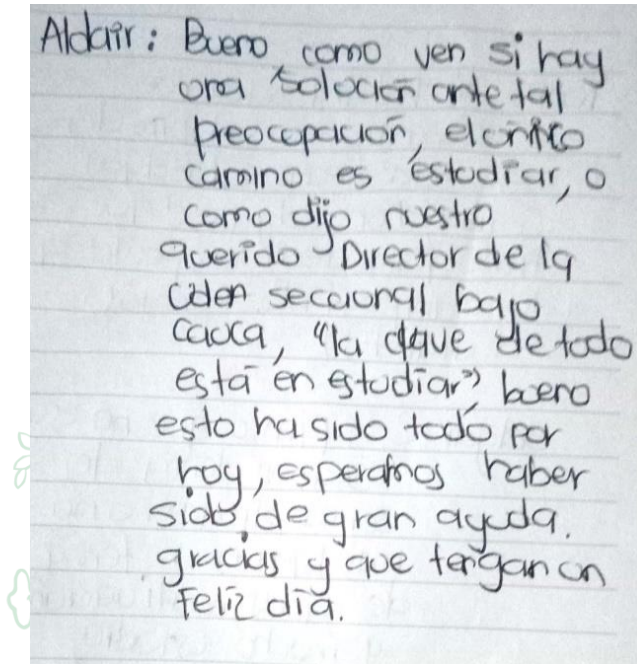 Aldair: Bueno, como ven si hay
una solución ante tal
preocupación, el único
camino es estudiar, o
como dijo nuestro
querido Director de la
Uden seccional bajo
cauca, "la clave de todo
está en estudiar", bueno
esto ha sido todo por
hoy, esperamos haber
sido de gran ayuda.
gracias y que tengan un
Feliz día.